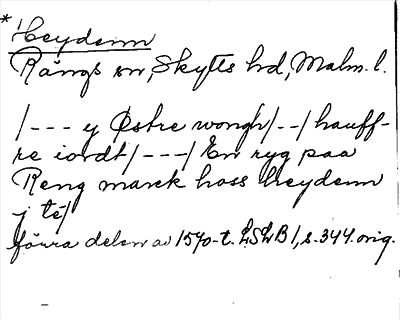 * Heydenn
Rängs sn, Skytts hd, Malm. l.
/--- y Østre wongh/--/hauff-
re iordt/---/En ryg paa
Reng marck hoss heydenn
j té/
förra delen av 1570-t. LSLB 1, s. 344. orig.